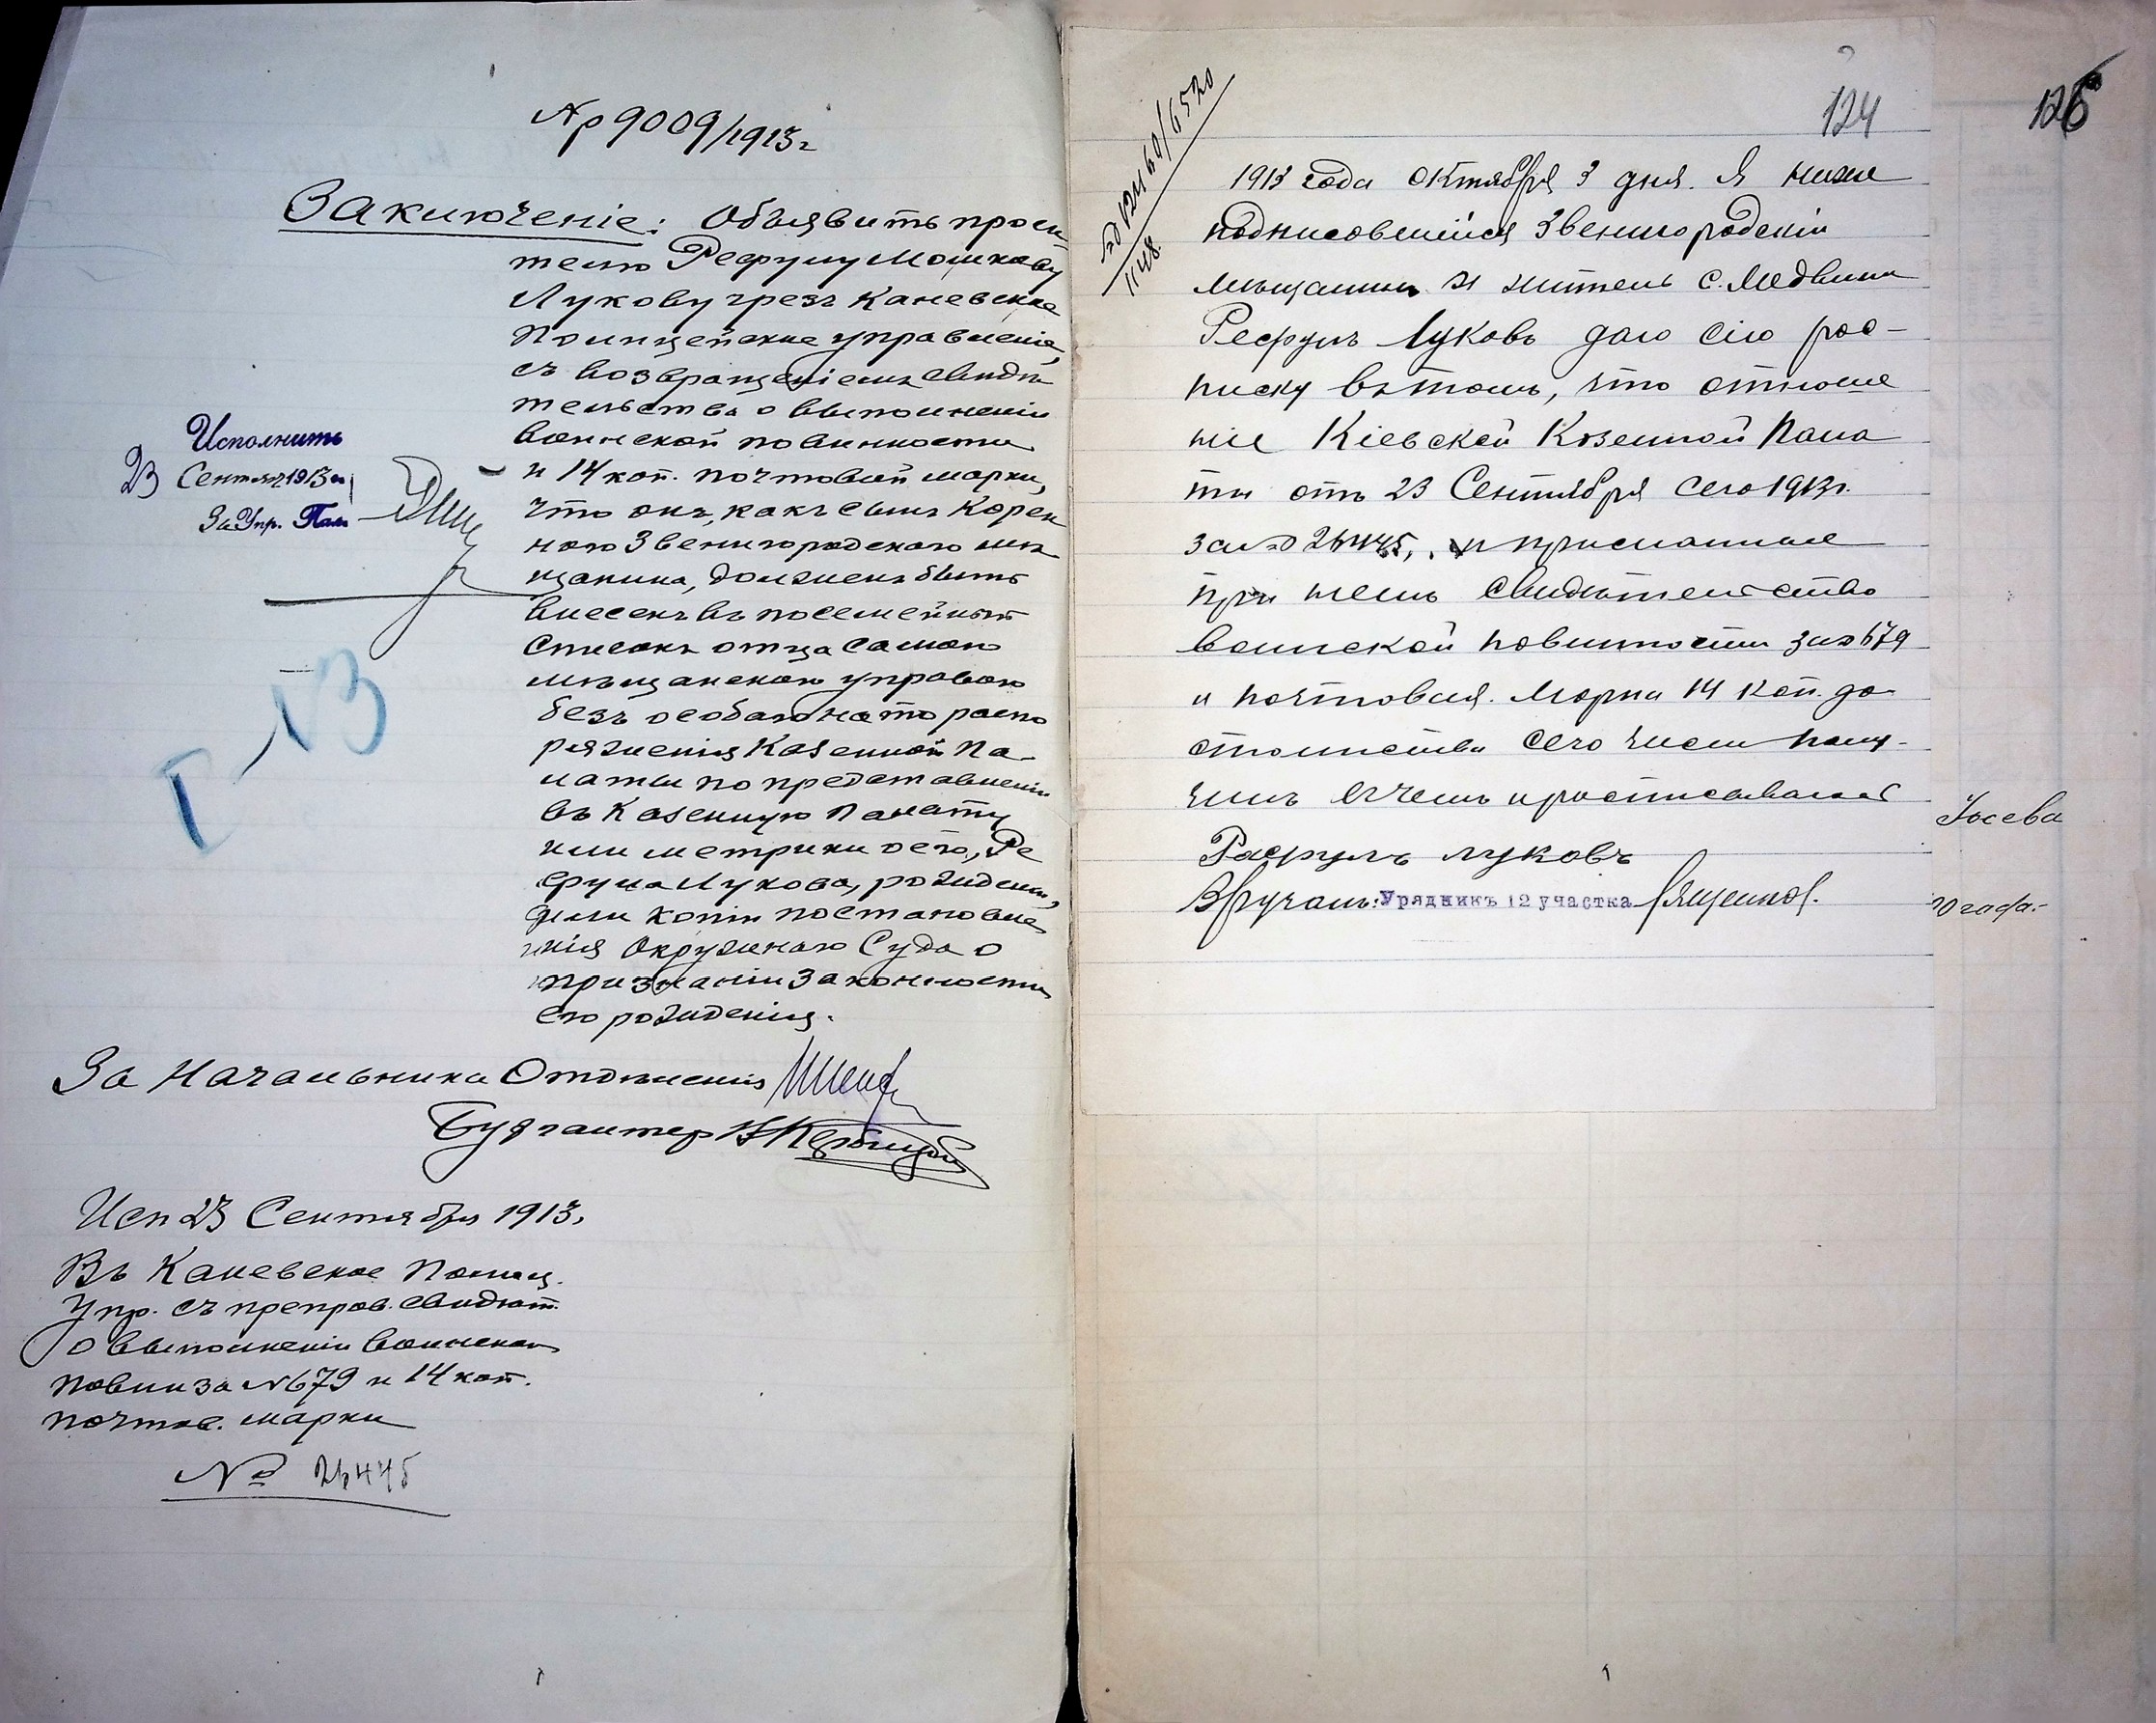 Ар 9009/1913 г
Заключеніе: Объявить проси
телю Рефулу Мошкову
Лукову чрезъ Каневское
Полицейское управленіе,
съ возвращеніемъ свидѣ
тельства о выполненіи
воинской повинности
и 14 коп. почтовой марки,
что онъ, какъ сынъ корен
ного Звенигородскаго мѣ
щанина, долженъ быть
внесенъ въ посемейный
списокъ отца самою
мѣщанскою управою
безъ особаго на то распо
ряженія Казенной Па-
латы по представленіи
въ Казенную Палату
или метрики о его, Ре
фула Лукова, рожденіи,
или копіи постановле
нія Окружнаго Суда о
признаніи законности
его рожденія.
Исполнить
23 Сентяб 1913 г.
За Упр. Пал
I-13
За Начальника Отдѣленія
Бухгалтер
Исп 23 Сентября 1913.
Въ Каневское Полиц.
Упр. съ препров. свидѣт.
о выполненіи воинской
повин за № 679 и 14 коп.
почтов. марки
№ 26445
1148.
124
1913 года октября 3 дня. Я ниже
подписовшійся Звенигородскій
мѣщанинъ и житель с. Медвина
Рефулъ Луковъ даю сію рос-
писку въ томъ, что отноше
ніе Кіевской Козенной Пала
ты отъ 23 Сентября сего 1913 г.
за № 26445, и присланные
при немъ свидѣтельство
воинской повинности за № 679
и почтовая. Морка 14 коп. до-
стоинства сего числа полу-
чилъ въ чемъ и росписываюсь
Рафулъ луковъ
Вручалъ: Урядникъ 12 участка
126